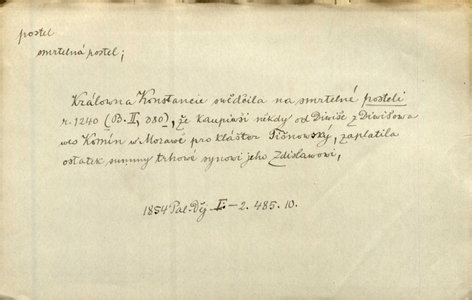 postel
smrtelná postel;
Králowna Konstancie swědčila na smrtelné posteli
r. 1240 (B. II, 380), že kaupiwši někdy od Diwiše z Diwišowa
wes Komín w Morawě pro klášter Tišnowský, zaplatila
ostatek summy trhowé synowi jeho Zdislawowi,
1854 Pal. Děj. I.–2. 485. 10.